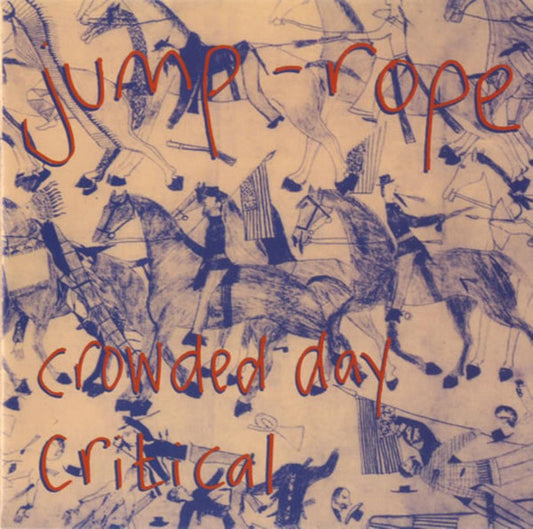 jump-rope
crowded day
critical